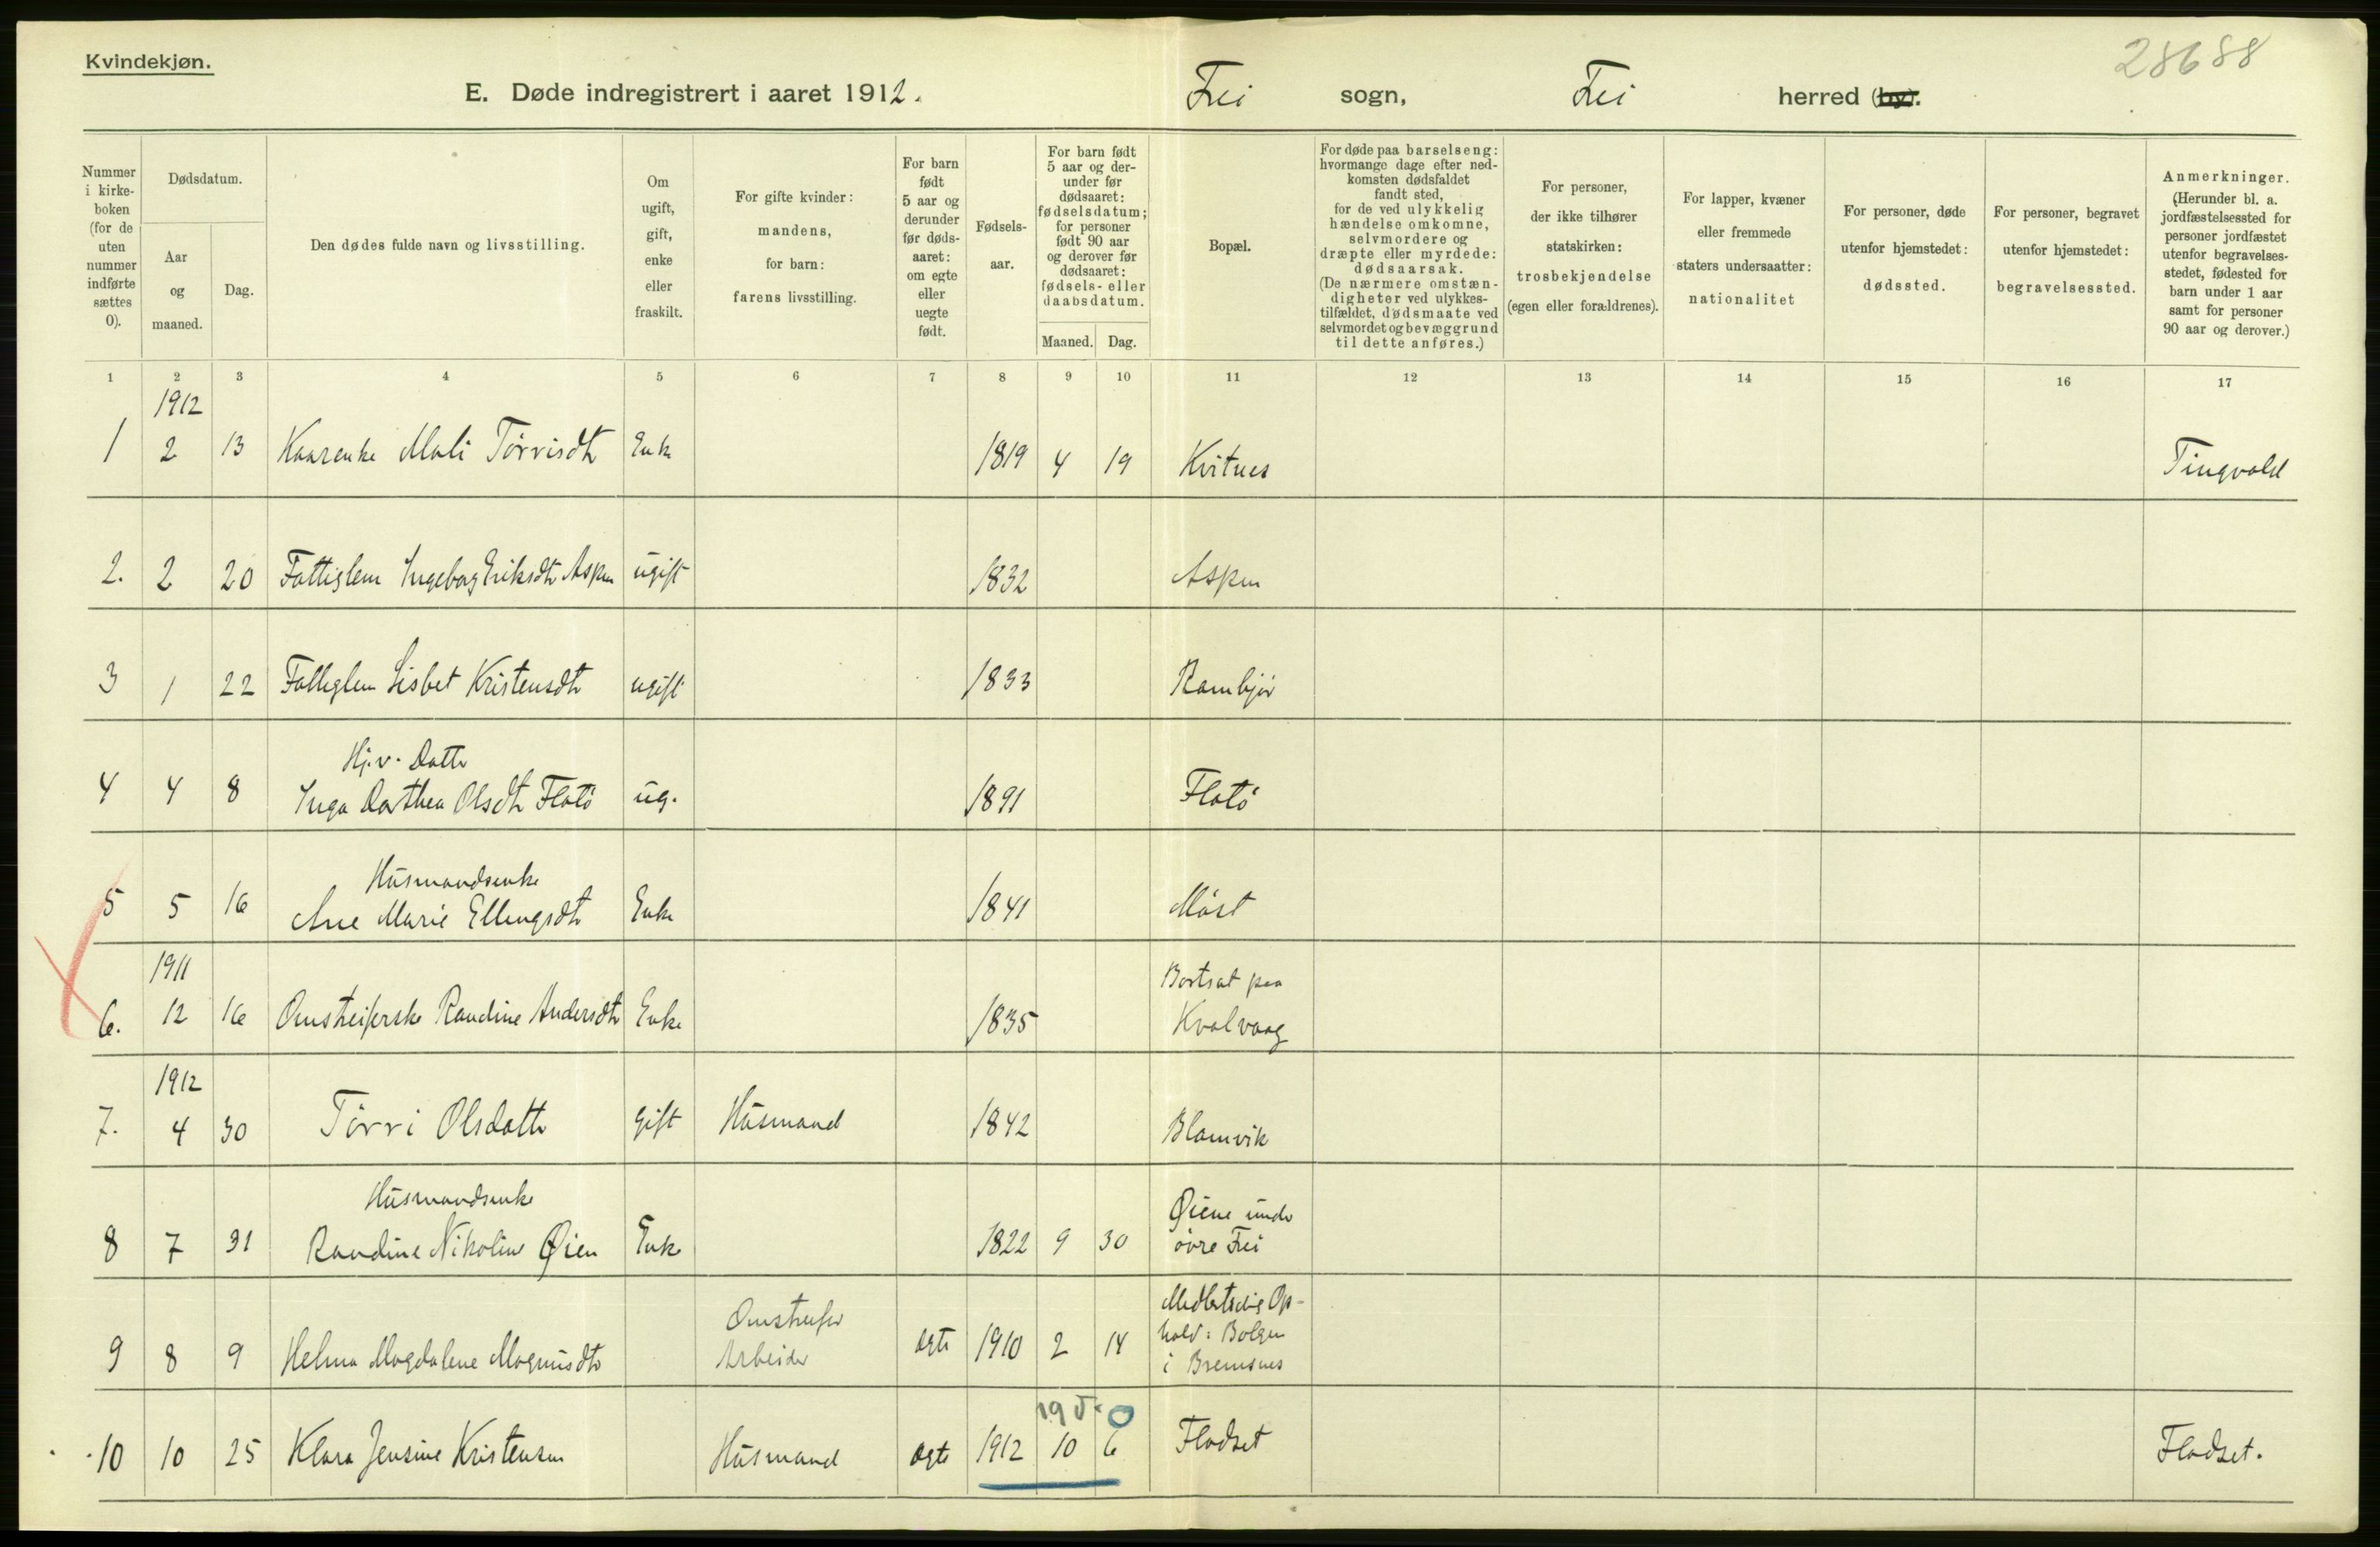 Kvindekjøn.
28688
E. Døde indregistrert i aaret 1912. Frei sogn, Frei herred (by).
Nummer i kirke-boken (for de uten nummer indførte sættes 0).
Dødsdatum.
Aar og maaned.
Dag.
Den dødes fulde navn og livsstilling.
Om ugift, gift, enke eller fraskilt.
For gifte kvinder: mandens, for barn: farens livsstilling.
For barn født 5 aar og derunder før døds-aaret: om egte eller uegte født.
Fødsels-aar.
For barn født 5 aar og der-under før dødsaaret: fødselsdatum; for personer født 90 aar og derover før dødsaaret: fødsels- eller daabsdatum.
Maaned. Dag.
Bopæl.
For døde paa barselseng: hvormange dage efter ned-komsten dødsfaldet fandt sted, for de ved ulykkelig hændelse omkomne, selvmordere og dræpte eller myrdede: dødsaarsak. (De nærmere omstæn-digheter ved ulykkes-tilfældet, dødsmaate ved selvmordet og bevæggrund til dette anføres.)
For personer, der ikke tilhører statskirken: trosbekjendelse (egen eller forældrenes).
For lapper, kvæner eller fremmede staters undersaatter: nationalitet
For personer, døde utenfor hjemstedet: dødssted.
For personer, begravet utenfor hjemstedet: begravelsessted.
Anmerkninger. (Herunder bl. a. jordfæstelsessted for personer jordfæstet utenfor begravelses-stedet, fødested for barn under 1 aar samt for personer 90 aar og derover.)
1 2 3 4 5 6 7 8 9 10 11 12 13 14 15 16 17
1912
1 2 13 Kaarenke Mali Törrisdtr Enke 1819 4 19 Kvitnes Tingvold
2. 2 20 Fattiglem Ingeborg Eriksdtr Aspen ugift 1832 Aspen
3 1 22 Fattiglem Lisbet Kristensdtr ugift 1833 Rambjör
Hj.v. Datter
4 4 8 Inga Dorthea Olsdtr Flatö ug. 1891 Flatö
Husmandsenke
5 5 16 Ane Marie Ellingsdtr Enke 1841 Möst
1911 Bortsat paa
6. 12 16 Omstreiferske Randine Andersdtr Enke 1835 Kvalvaag
1912
7. 4 30 Törri Olsdatter Gift Husmand 1842 Blamvik
Husmandsenke Øiene under
8 7 31 Randine Nikoline Øien Enke 1822 9 30 övre Frei
Omstreifer Midlertidig Op-
9 8 9 Helma Magdalene Magnusdtr Arbeider egte 1910 2 14 hold: Bolgen
i Bremsnes
19 5. 0
10 10 25 Klara Jensine Kristensen Husmand egte 1912 10 6 Fladset Fladset.